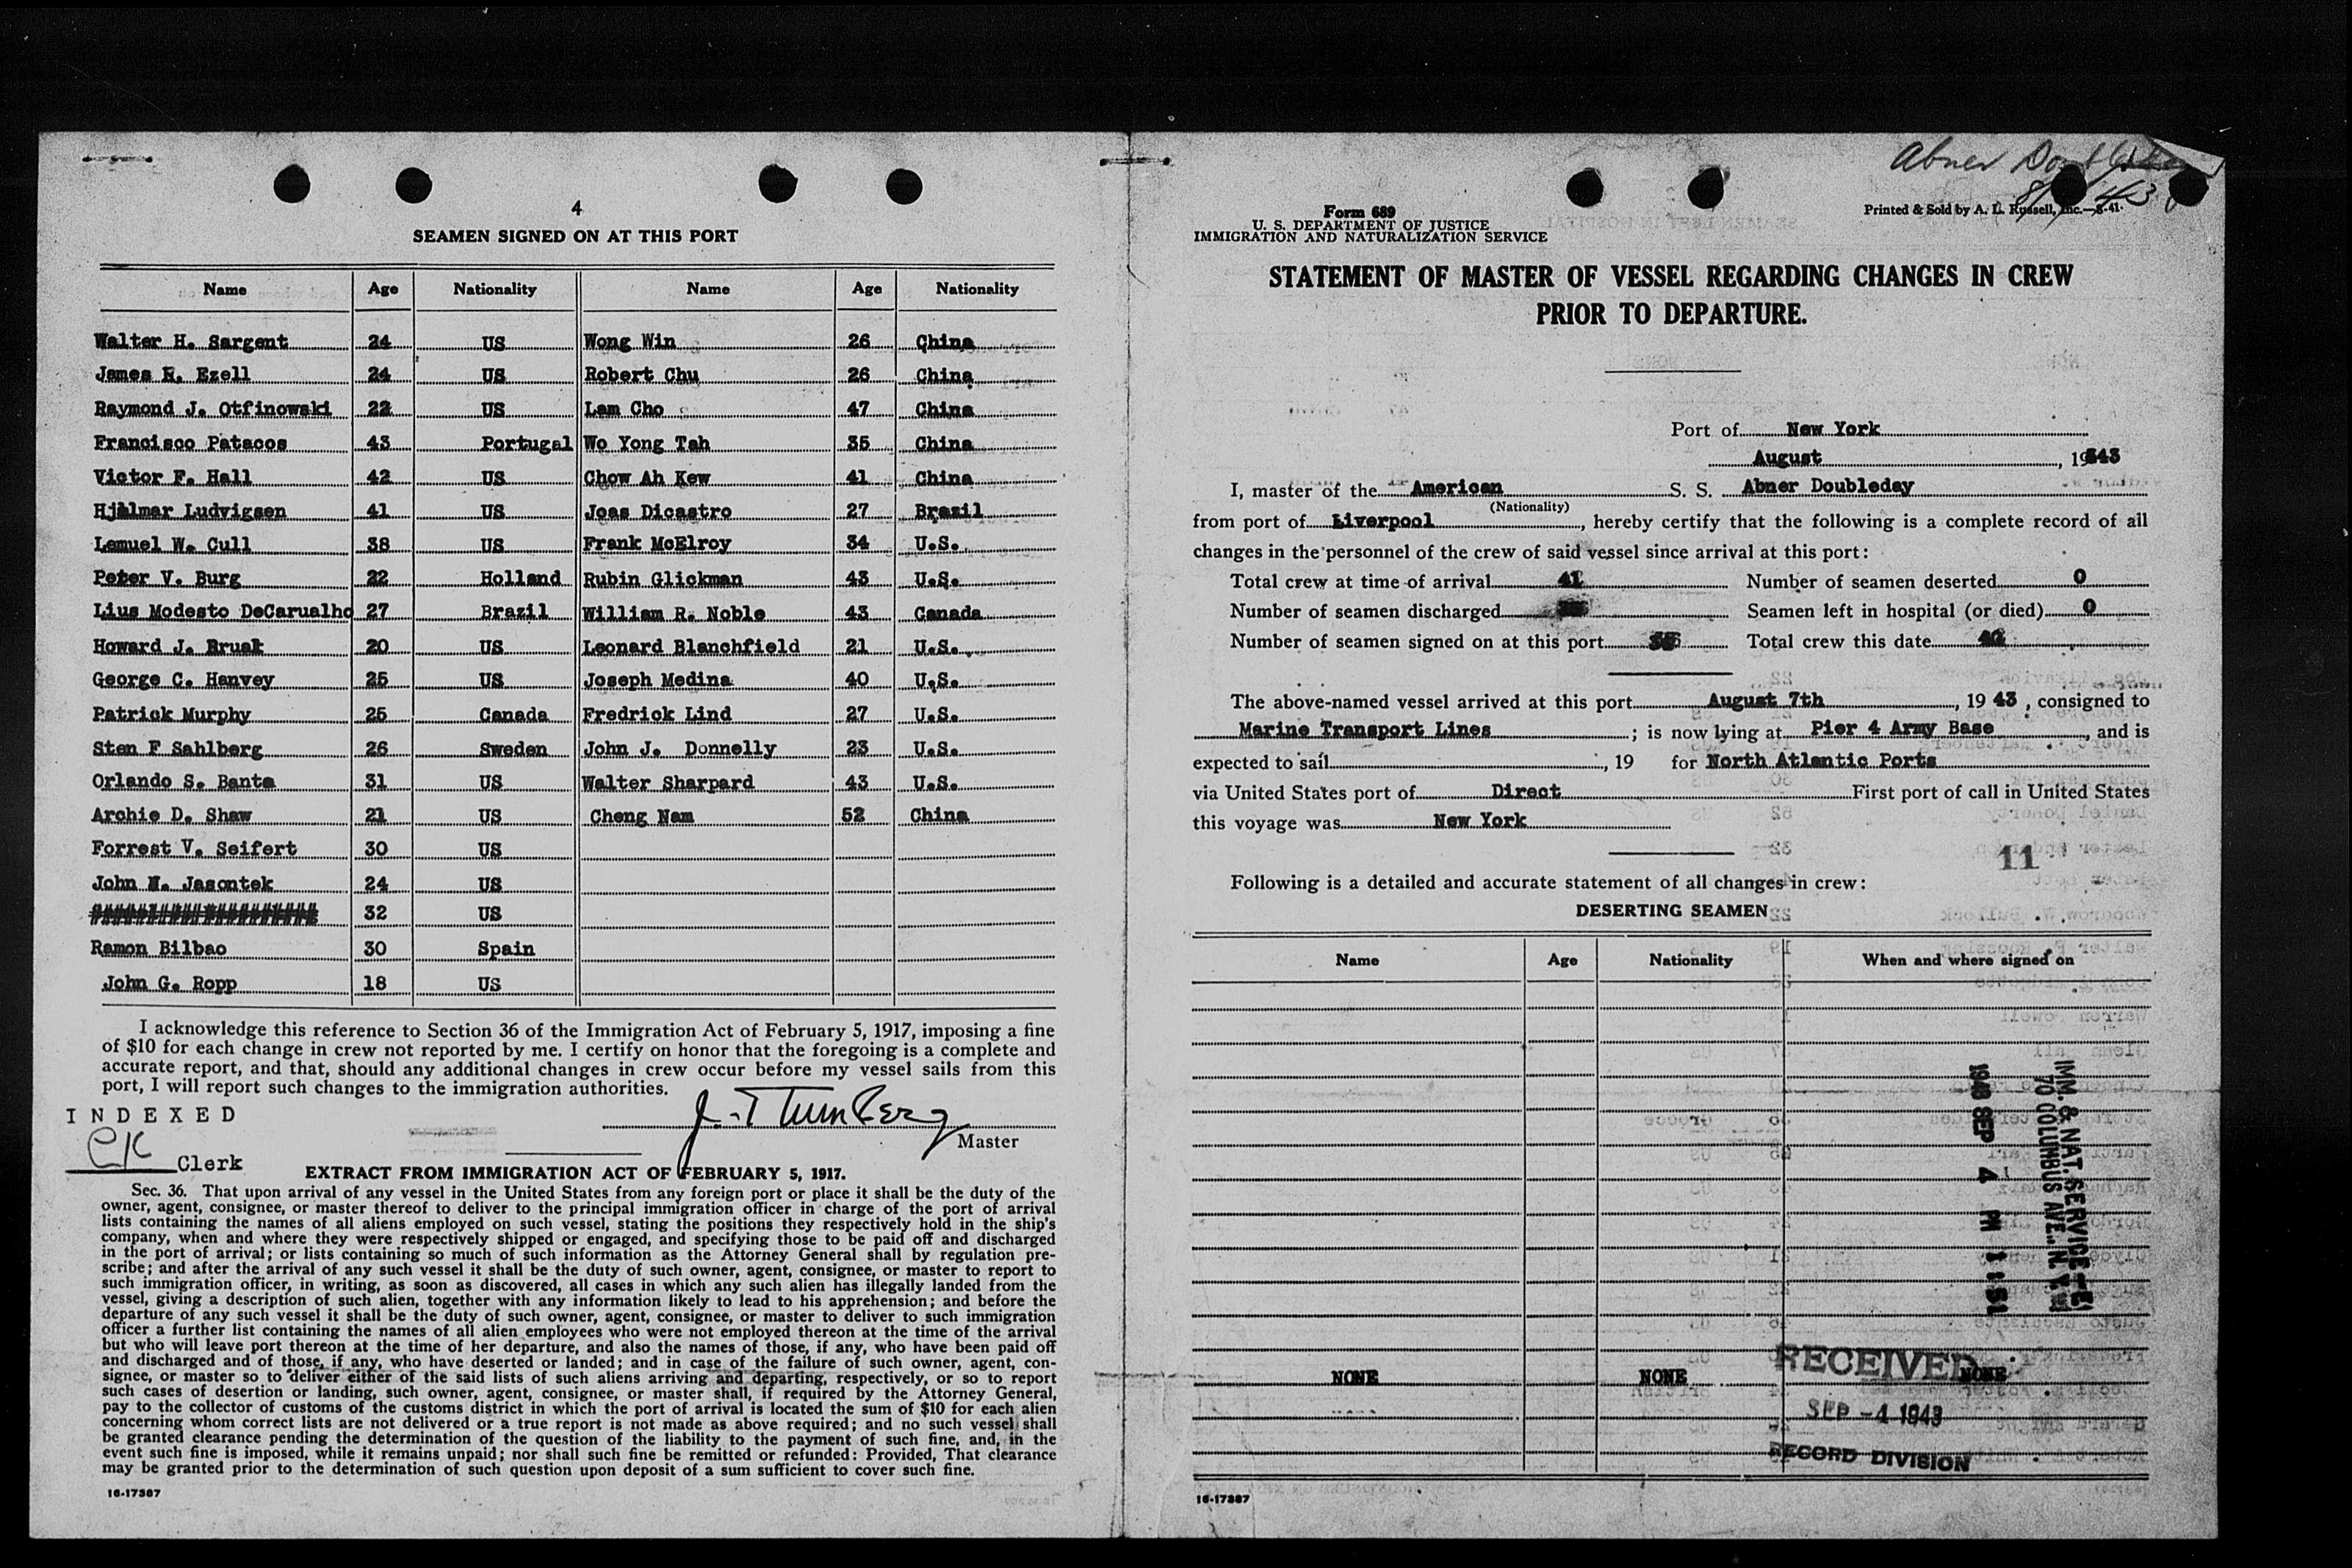 4
SEAMEN SIGNED ON AT THIS PORT
Name Age Nationality Name Age Nationality
Walter H. Sargent 24 US Wong Win 26 China
James R. Ezell 24 US Robert Chu 26 China
Raymond J. Otfinowski 22 US Lam Cho 47 China
Francisco Patacos 43 Portugal Wo Yong Tah 35 China
Victor F. Hall 42 US Chow Ah Kew 41 China
Hjalmar Ludvigsen 41 US Joas Dicastro 27 Brazil
Lemuel W. Cull 38 US Frank McElroy 34 U.S.
Peter V. Burg 22 Holland Rubin Glickman 43 U.S.
Lius Modesto DeCarualho 27 Brazil William R. Noble 43 Canada
Howard J. Bruak 20 US Leonard Blanchfield 21 U.S.
George C. Hanvey 25 US Joseph Medina 40 U.S.
Patrick Murphy 25 Canada Fredrick Lind 27 U.S.
Sten F Sahlberg 26 Sweden John J. Donnelly 23 U.S.
Orlando S. Banta 31 US Walter Sharpard 43 U.S.
Archie D. Shaw 21 US Cheng Nam 52 China
Forrest V. Seifert 30 US
John N. Jasontek 24 US
32 US
Ramon Bilbao 30 Spain
John G. Ropp 18 US
I acknowledge this reference to Section 36 of the Immigration Act of February 5, 1917, imposing a fine
of $10 for each change in crew not reported by me. I certify on honor that the foregoing is a complete and
accurate report, and that, should any additional changes in crew occur before my vessel sails from this
port, I will report such changes to the immigration authorities.
INDEXED
CK Clerk
Master
EXTRACT FROM IMMIGRATION ACT OF FEBRUARY 5, 1917.
Sec. 36. That upon arrival of any vessel in the United States from any foreign port or place it shall be the duty of the
owner, agent, consignee, or master thereof to deliver to the principal immigration officer in charge of the port of arrival
lists containing the names of all aliens employed on such vessel, stating the positions they respectively hold in the ship's
company, when and where they were respectively shipped or engaged, and specifying those to be paid off and discharged
in the port of arrival; or lists containing so much of such information as the Attorney General shall by regulation pre-
scribe; and after the arrival of any such vessel it shall be the duty of such owner, agent, consignee, or master to report to
such immigration officer, in writing, as soon as discovered, all cases in which any such alien has illegally landed from the
vessel, giving a description of such alien, together with any information likely to lead to his apprehension; and before the
departure of any such vessel it shall be the duty of such owner, agent, consignee, or master to deliver to such immigration
officer a further list containing the names of all alien employees who were not employed thereon at the time of the arrival
but who will leave port thereon at the time of her departure, and also the names of those, if any, who have been paid off
and discharged and of those, if any, who have deserted or landed; and in case of the failure of such owner, agent, con-
signee, or master so to deliver either of the said lists of such aliens arriving and departing, respectively, or so to report
such cases of desertion or landing, such owner, agent, consignee, or master shall, if required by the Attorney General,
pay to the collector of customs of the customs district in which the port of arrival is located the sum of $10 for each alien
concerning whom correct lists are not delivered or a true report is not made as above required; and no such vessel shall
be granted clearance pending the determination of the question of the liability to the payment of such fine, and, in the
event such fine is imposed, while it remains unpaid; nor shall such fine be remitted or refunded: Provided, That clearance
may be granted prior to the determination of such question upon deposit of a sum sufficient to cover such fine.
16-17387
Abner Doubleday
Form 689
U. S. DEPARTMENT OF JUSTICE
IMMIGRATION AND NATURALIZATION SERVICE
Printed & Sold by A. L. Russell, Inc.—8-41
STATEMENT OF MASTER OF VESSEL REGARDING CHANGES IN CREW
PRIOR TO DEPARTURE.
Port of New York
August , 1943
I, master of the American S. S. Abner Doubleday
(Nationality)
from port of Liverpool, hereby certify that the following is a complete record of all
changes in the personnel of the crew of said vessel since arrival at this port:
Total crew at time of arrival 41 Number of seamen deserted 0
Number of seamen discharged Seamen left in hospital (or died) 0
Number of seamen signed on at this port Total crew this date
The above-named vessel arrived at this port August 7th, 1943, consigned to
Marine Transport Lines; is now lying at Pier 4 Army Base, and is
expected to sail , 19 for North Atlantic Ports
via United States port of Direct First port of call in United States
this voyage was New York
11
Following is a detailed and accurate statement of all changes in crew:
DESERTING SEAMEN
Name Age Nationality When and where signed on
NONE NONE NONE
IMM. & NAT. SERVICE
70 COLUMBUS AVE., N. Y.
1943 SEP 4 PM 1:51
RECEIVED
SEP -4 1943
RECORD DIVISION
16-17387